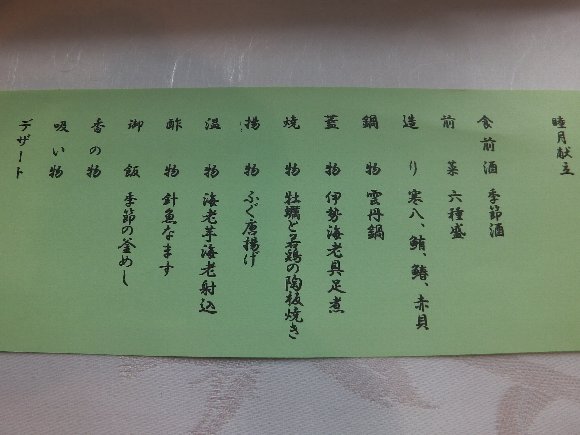 睦月献立
食前酒 季節酒
前菜 六種盛
造り 寒八、鮪、鰆、赤貝
鍋物 雲丹鍋
蓋物 伊勢海老具足煮
焼物 牡蠣と若鶏の陶板焼き
揚物 ふぐ唐揚げ
温物 海老芋海老射込
酢物 針魚なます
御飯 季節の釜めし
香の物
吸い物
デザート